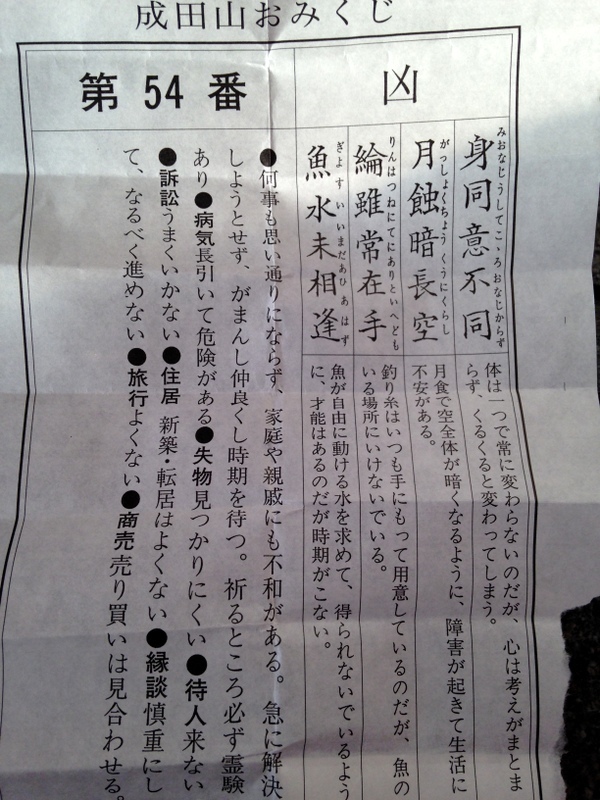 成田山おみくじ
第 54 番
凶
身同意不同
みおなじうしてこゝろおなじからず
体は一つで常に変わらないのだが、心は考えがまとま
らず、くるくると変わってしまう。
月蝕暗長空
がっしょくちょうくうにくらし
月食で空全体が暗くなるように、障害が起きて生活に
不安がある。
綸雖常在手
りんはつねにてにありといへども
釣り糸はいつも手にもって用意しているのだが、魚の
いる場所にいけないでいる。
魚水未相逢
ぎょすいいまだあひあはず
魚が自由に動ける水を求めて、得られないでいるよう
に、才能はあるのだが時期がこない。
●何事も思い通りにならず、家庭や親戚にも不和がある。急に解決
しようとせず、がまんし仲良くし時期を待つ。祈るところ必ず霊験
あり●病気長引いて危険がある●失物見つかりにくい●待人来ない
●訴訟うまくいかない●住居 新築・転居はよくない●縁談慎重にし
て、なるべく進めない●旅行よくない●商売売り買いは見合わせる。